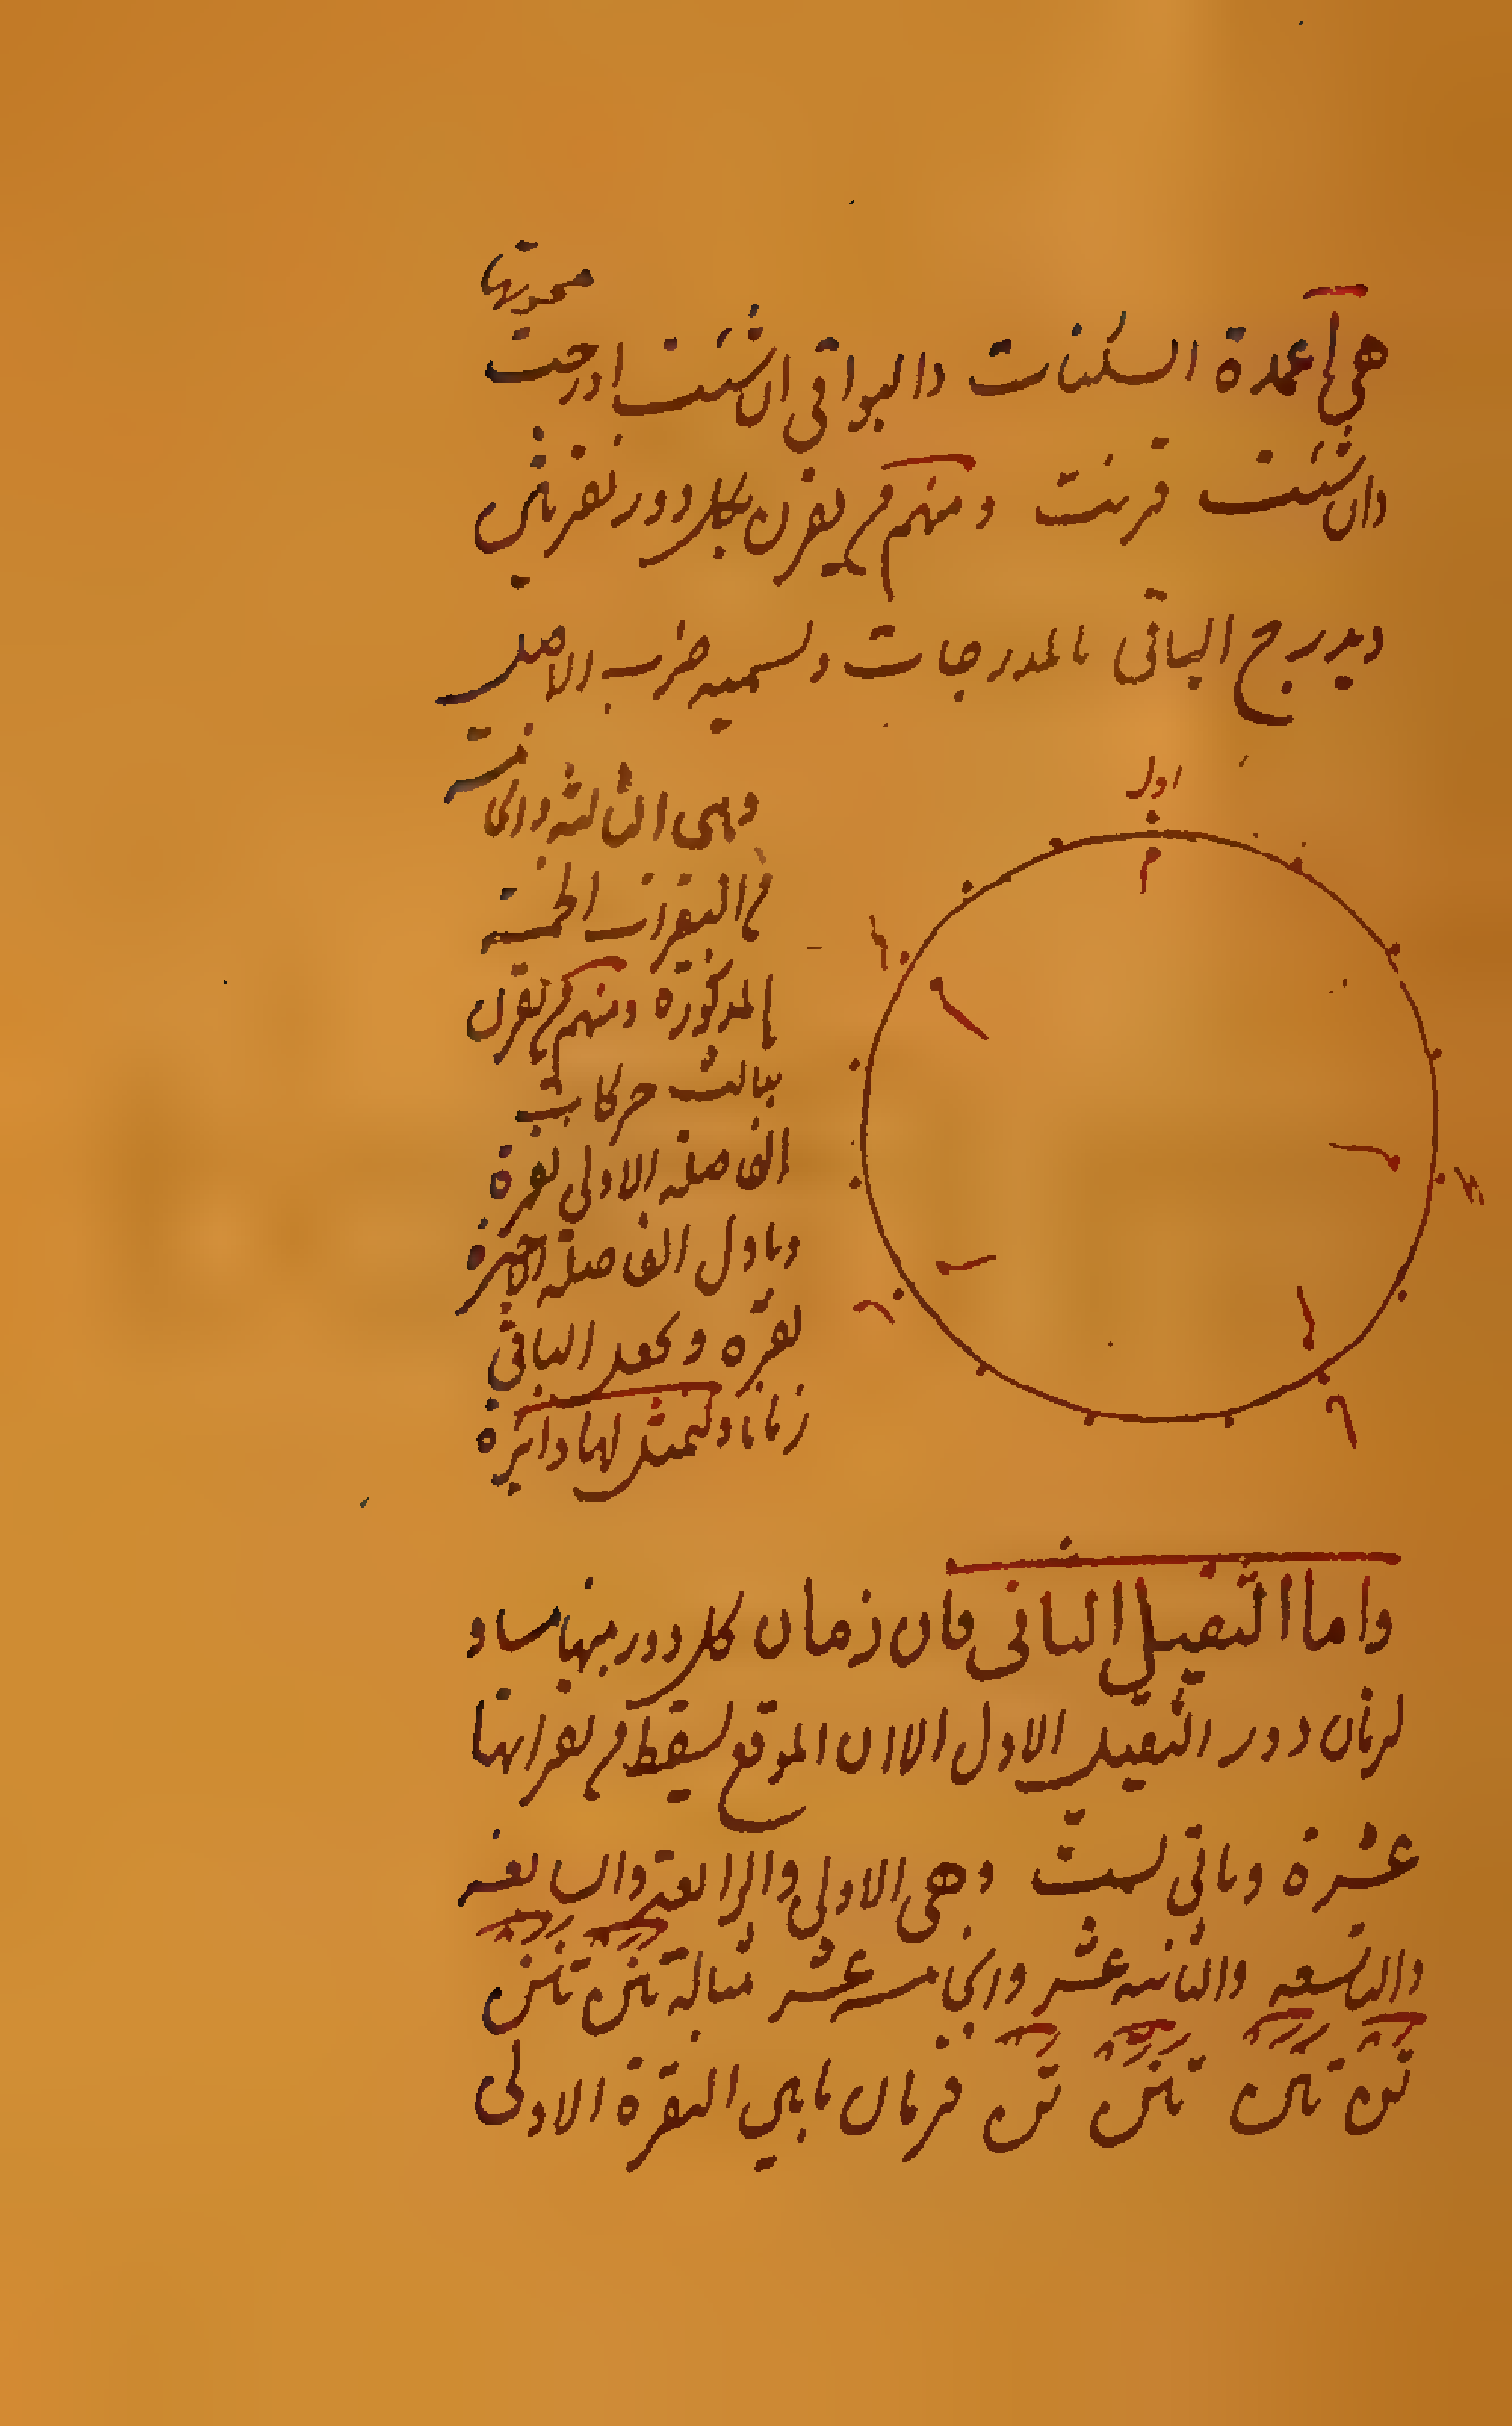 محديتها
هي اعمدة السكنات والبواقى ان شئت ادرجت
وان شئت قرنت ومنهم من يقرن بكل دور نقرتين
ويدرج الباقى المدرجات وتسميه ضرب الاصل
وهى الثالثة والخامسة
من النقرات الخمسة
المذكورة ومنهم من يقرن
بثالث حركات
الفاصلة الاولى نقرة
وباول الفاصلة الاخيرة
نقرة ويجعل الباقى
زمانا ولنمثل لها دائرة
اول
م
واما الثقيل الثانى فان زمان كل دور منها مساو
لزمان دور الثقيل الاول الا ان الموقع يسقط من نقراتها
عشرة وباقى ست وهى الاولى والرابعة والسابعة
والتاسعة والثانية عشر والخامسة عشر مثاله تنن تنن
تن تنن تنن تن فزمان ما بين النقرة الاولى